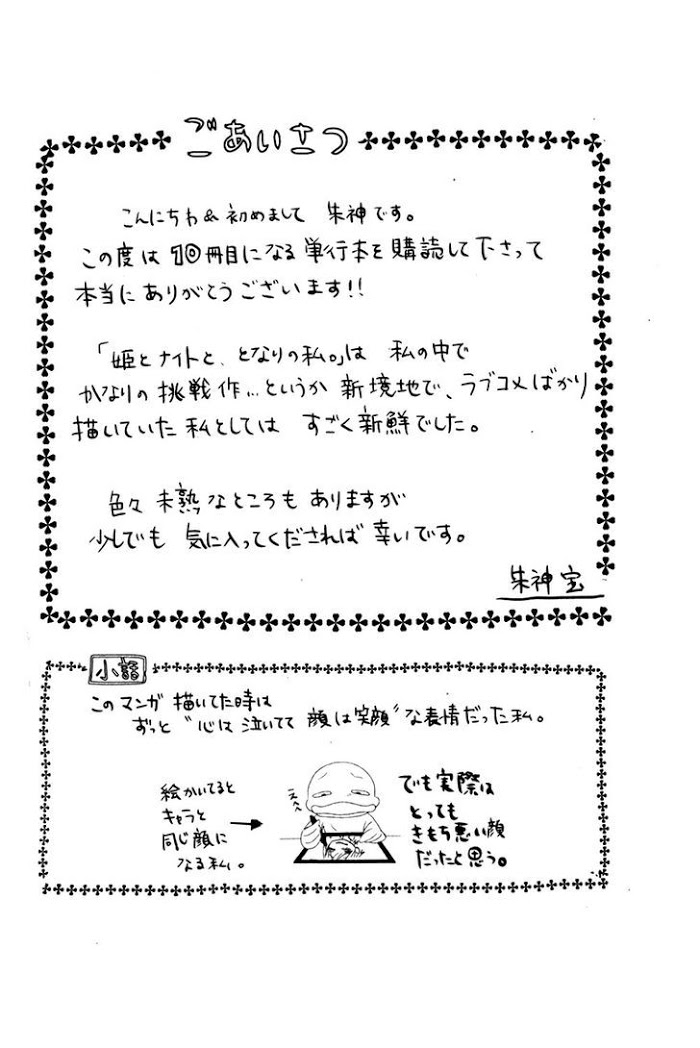 ごあいさつ
こんにちわ&初めまして 朱神です。
この度は10冊目になる単行本を購読して下さって
本当にありがとうございます!!
「姫とナイトと、となりの私。」は 私の中で
かなりの挑戦作…というか 新境地で、ラブコメばかり
描いていた私としては すごく新鮮でした。
色々 未熟なところもありますが
少しでも 気に入ってくだされば 幸いです。
朱神宝
小話
このマンガ 描いてた時は
ずっと“心は泣いてて 顔は笑顔”な表情だった私。
絵かいてると
キャラと
同じ顔に
なる私。
でも実際は
とっても
きもち悪い顔
だったと思う。